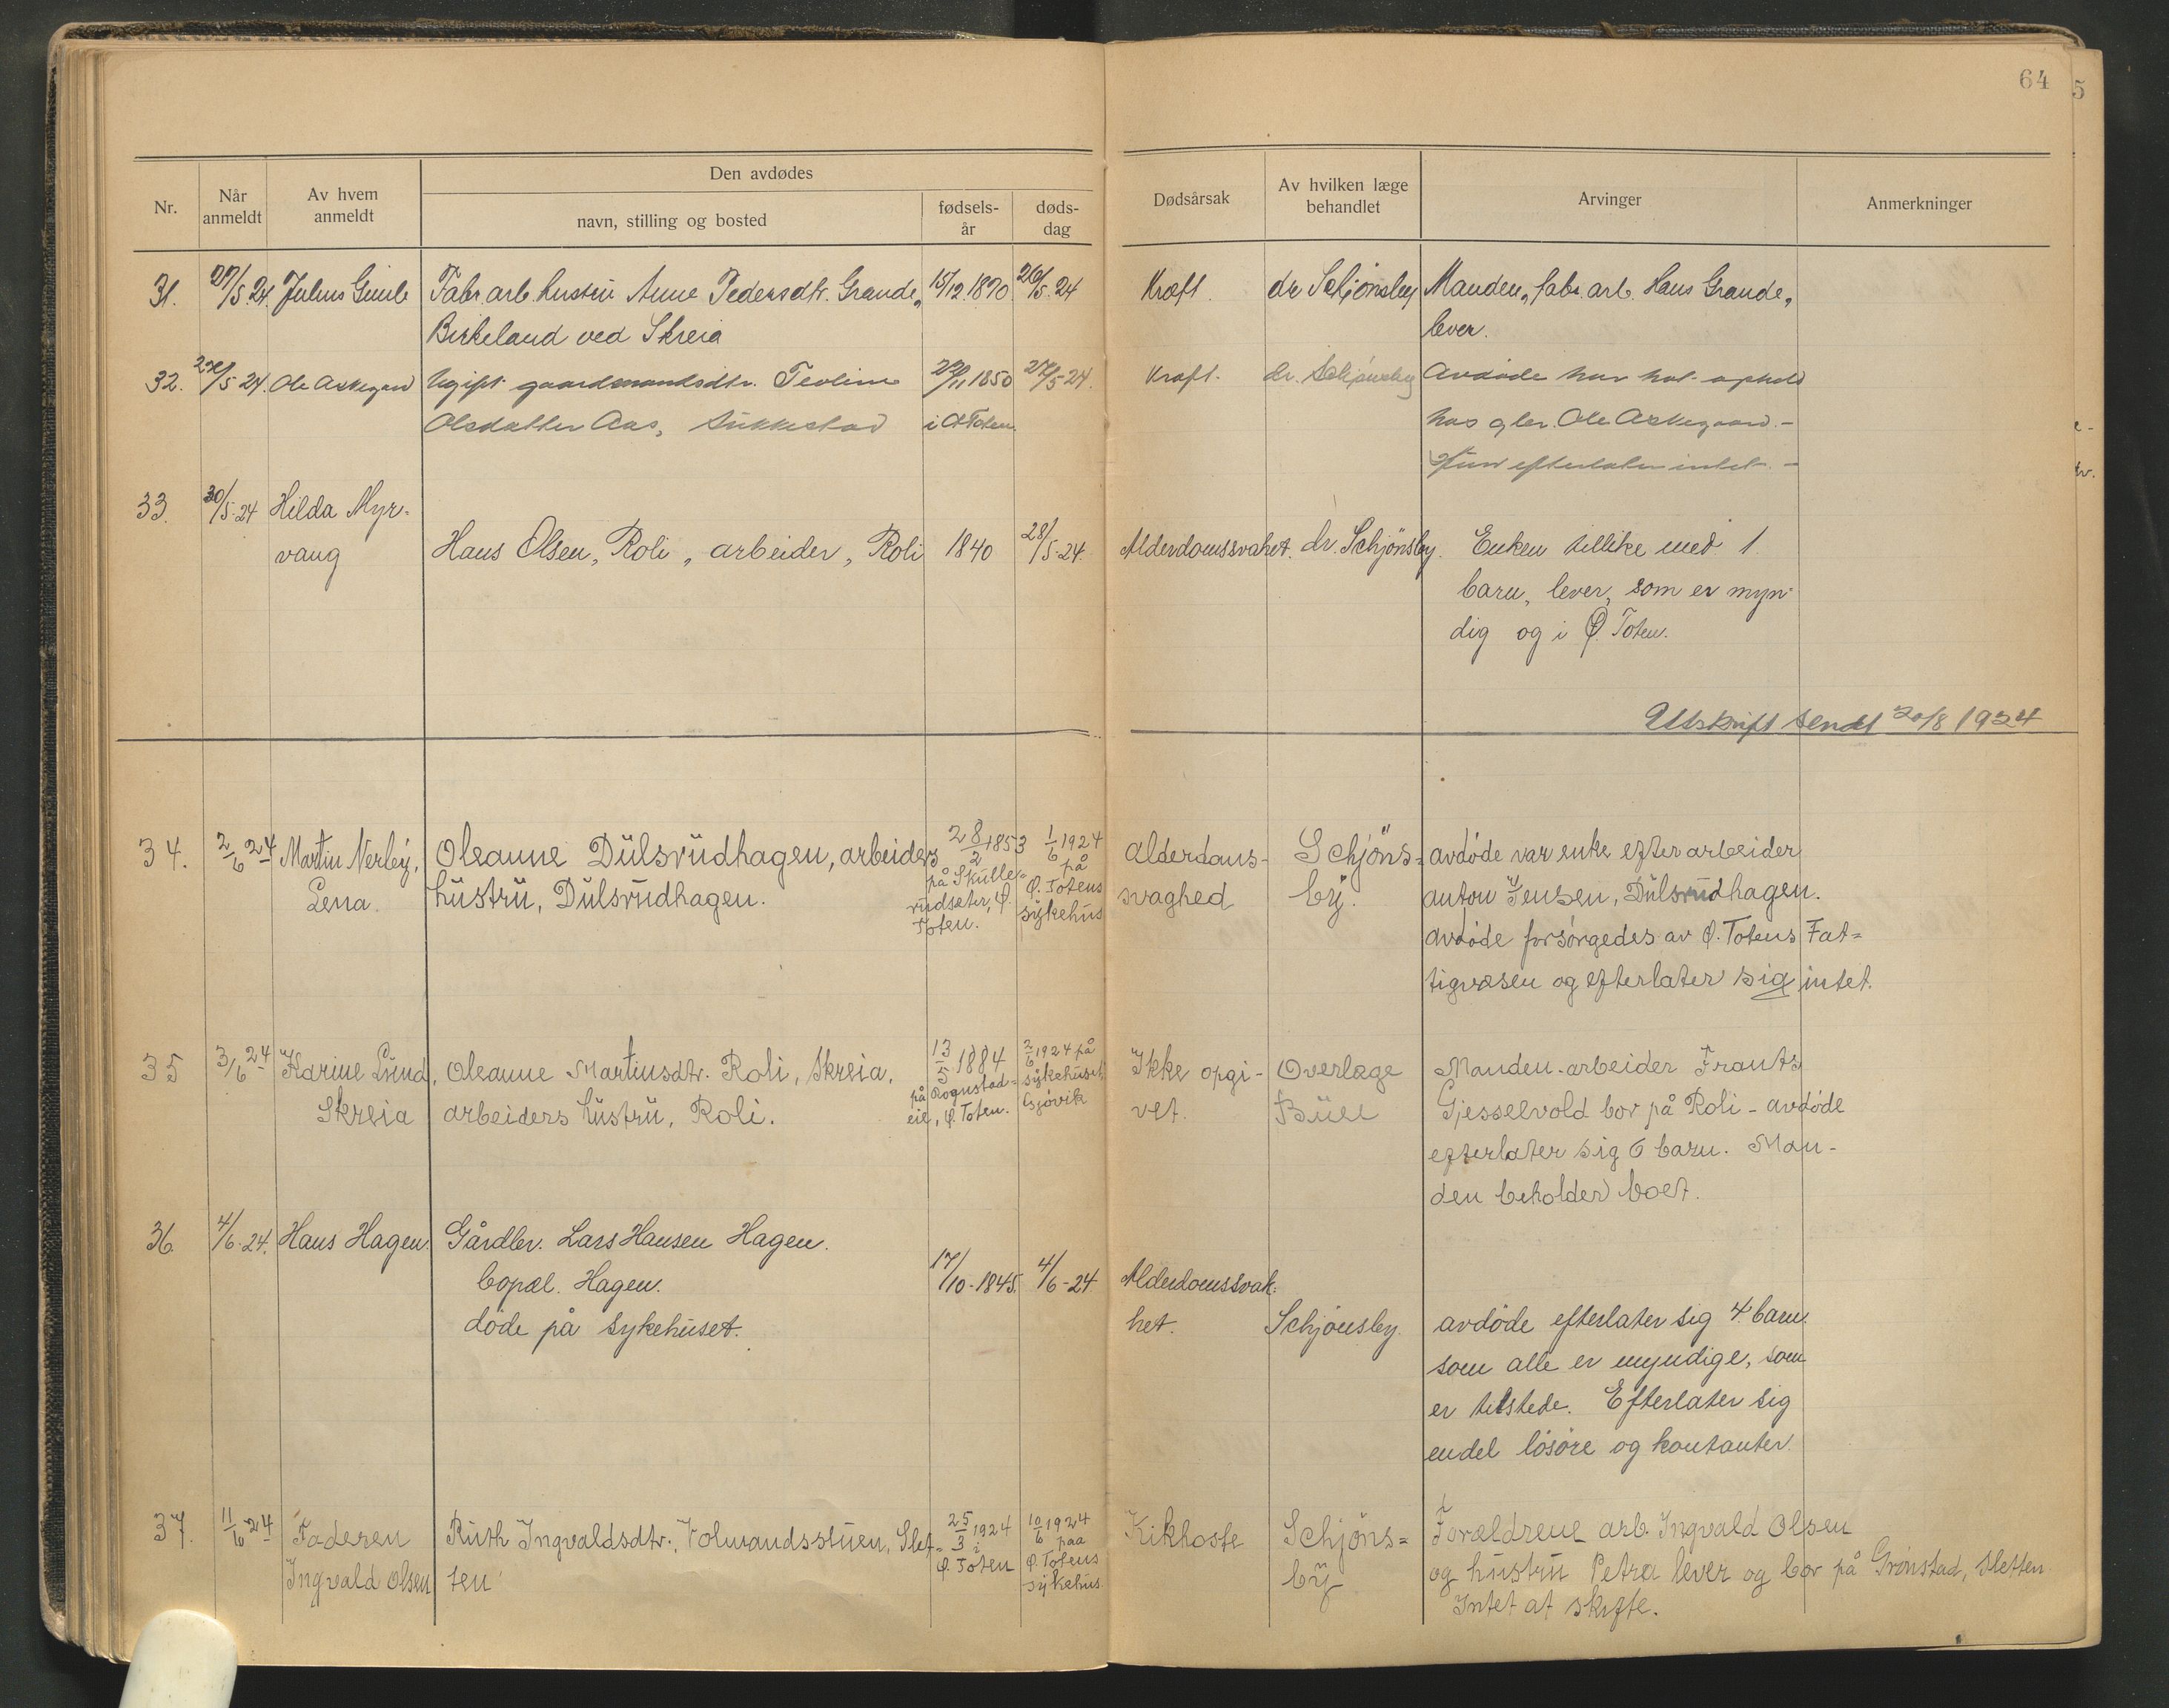 64
5
Den avdødes
Nr.
Når anmeldt
Av hvem anmeldt
navn, stilling og bosted
fødsels-år
døds-dag
Dødsårsak
Av hvilken læge behandlet
Arvinger
Anmerkninger
31. 27/5.24. Julius Fabr. arb. hustru Anne Pedersdtr. Grande, 15/12.1870. 26/5.24 Kræft. dr Schjønsby Manden, fabr. arb. Hans Grande,
Birkeland ved Skreia lever.
32. 5.24. Ole Askegard Ugift gaardmandsdtr. Teoline 1850 27/5-24. Kræft. dr. Schjønsby Avdøde har hat ophold
Olsdatter Aas, Sukkestad i Ø Toten. hos gbr. Ole Askegaard. -
Hun efterlater intet. -
33. 30/5-24 Hilda Myr-
vang Hans Olsen, Roli, arbeider, Roli 1840 28/5-24. Alderdomssvakhet. dr. Schjønsby. Enken tillike med 1
barn, lever, som er myn-
dig og i Ø. Toten.
Utskrift sendt 20/8 1924
34. 2/6 24 Martin Nerby, Oleanne Dulsrudhagen, arbeiders 28/2 1853 1/6 1924 Alderdoms- Schjøns- avdøde var enke efter arbeider
Lena. hustru, Dulsrudhagen. på Skulle-rudseter, Ø. Toten. på Ø. Totens sykehus svaghed by. Anton Jensen, Dulsrudhagen.
Avdøde forsørgedes av Ø. Totens Fat-
tigvæsen og efterlater sig intet.
35 3/6 24 Karine Lund, Oleanne Martinsdtr. Roli, Skreia, 13/5 1884 2/6 1924 på Ikke opgi- Overlæge Manden - arbeider Frants
Skreia arbeiders hustru, Roli. på Rognstad-eie, Ø. Toten. sykehuset, Gjøvik vet. Gjesselvold bor på Roli - avdøde
efterlater sig 6 barn. Man-
den beholder boet.
36. 4/6-24. Hans Hagen. Gårdbr. Lars Hansen Hagen.
bopæl. Hagen. 17/10-1845. 4/6-24 Alderdomssvak-
døde på sykehuset. het. Schjønsby. avdøde efterlater sig 4 barn
som alle er myndige, som
er tilstede. Efterlater sig
endel løsøre og kontanter.
37. 11/6 24 Faderen Ruth Ingvaldsdtr., Volmandsstuen, Slet- 25/3 1924 i 10/6 1924 paa Kikhoste Schjøns- Forældrene arb. Ingvald Olsen
Ingvald Olsen ten Ø. Toten Ø. Totens sykehus. by og hustru Petra lever og bor på Grønstad, Sletten
Intet at skifte.